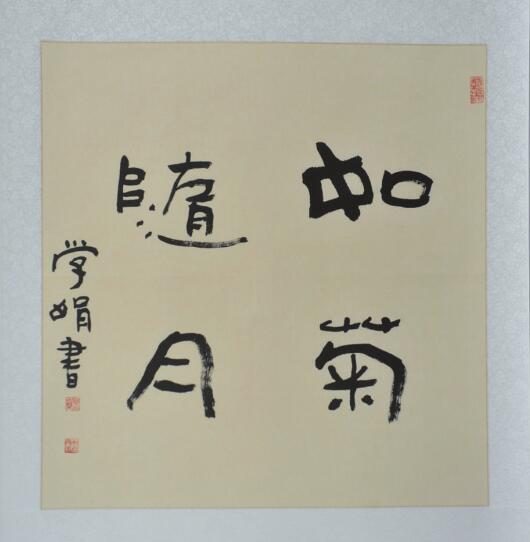 如菊
隨月
学娟書